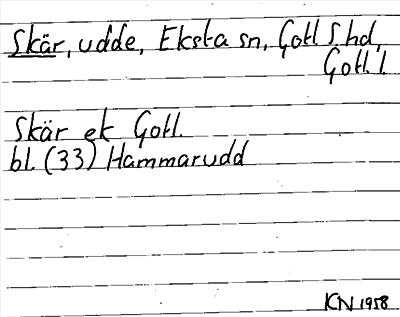 Skär, udde, Eksta sn, Gotl S. hd,
Gotl. l.
Skär ek Gotl.
bl. (33) Hammarudd
KN 1958